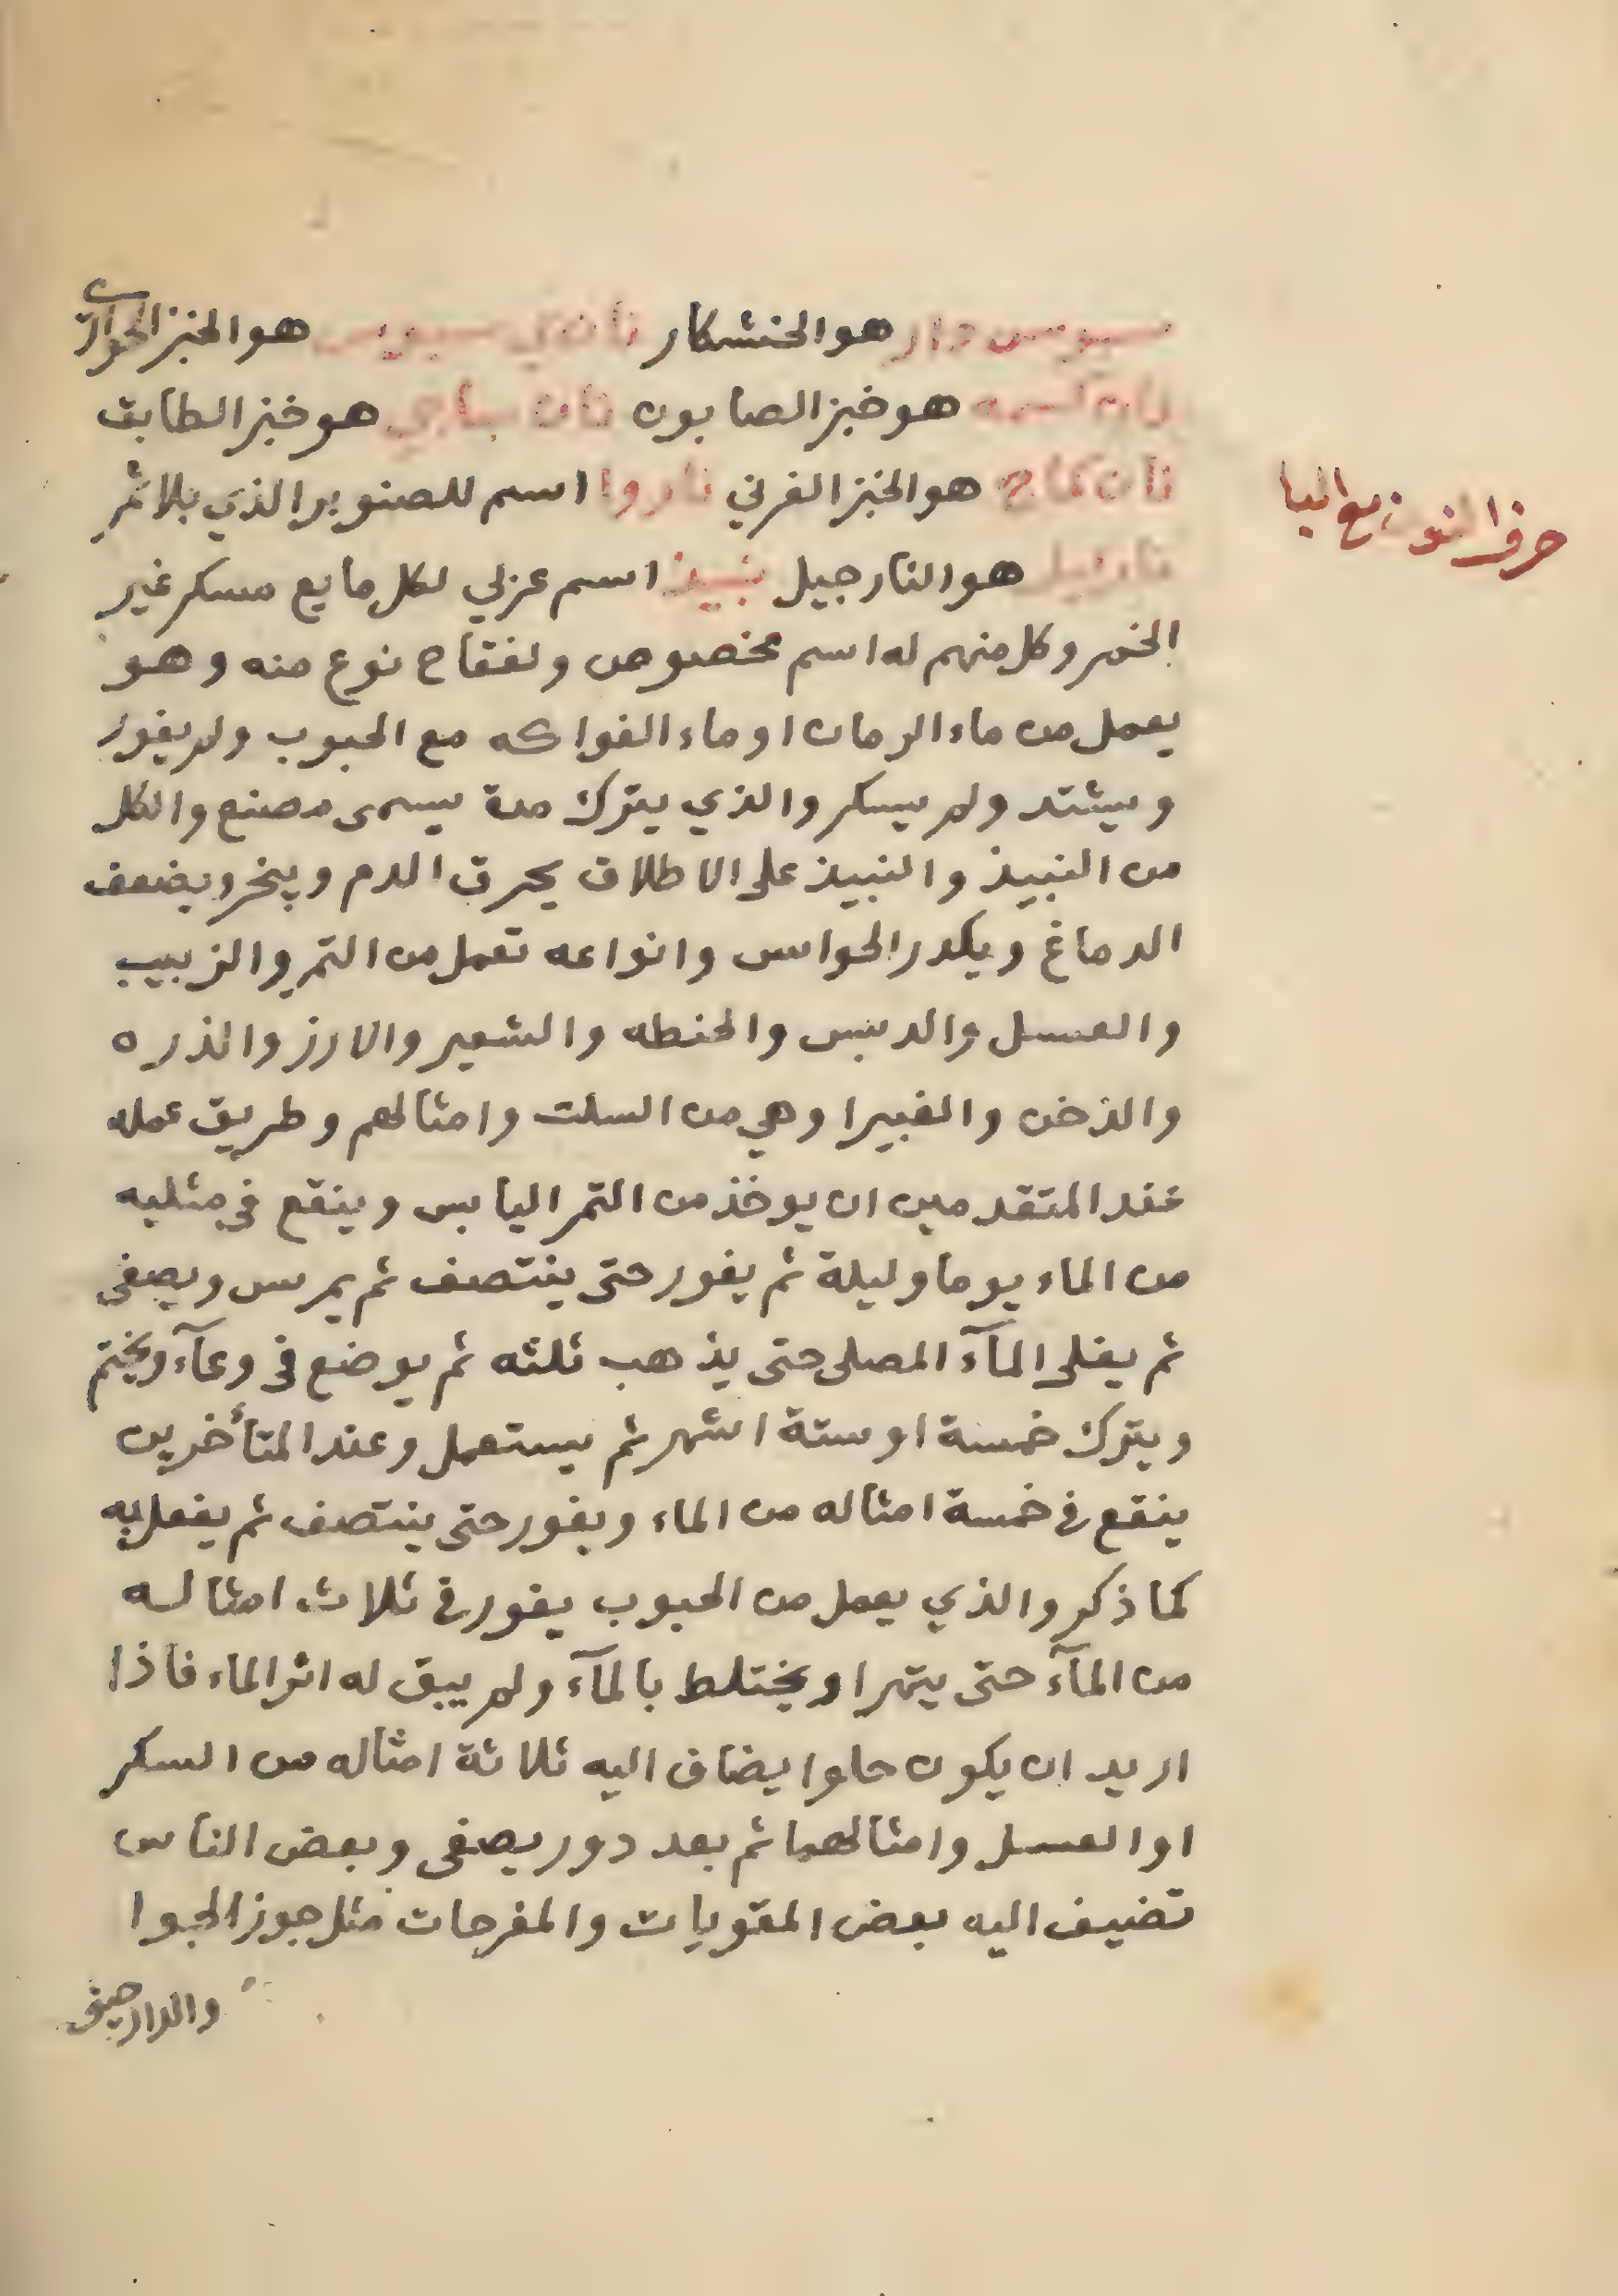 سبوس دار هو الخشكار نان بي سبوس هو الخبز الحوارى
نان هو خبز الصابون نان ساجي هو خبز الطابق
نان كماج هو الخبز الفرني ناروا اسم للصنوبر الذي بلا ثمر
حرف النون مع البا
نارنيل هو النارجيل نبيذ اسم عربي لكل مايع مسكر غير
الخمر وكل منهم له اسم مخصوص ولفقاح نوع منه وهو
يعمل من ماء الرمان او ماء الفواكه مع الحبوب ولم يفور
ويشتد ولم يسكر والذي يترك مدة يسمى مصنع والكل
من النبيذ والنبيذ على الاطلاق يحرق الدم ويبخر ويضعف
الدماغ ويكدر الحواس وانواعه تعمل من التمر والزبيب
والعسل والدبس والحنطه والشعير والارز والذره
والذخن والغبيرا وهي من السلت وامثالهم وطريق عمله
عند المتقدمين ان يوخذ من التمر اليابس وينقع في مثليه
من الماء يوما وليلة ثم يفور حتى ينتصف ثم يمرس ويصفى
ثم يغلى المآء المصلى حتى يذهب ثلثه ثم يوضع في وعآء ويختم
ويترك خمسة او ستة اشهر ثم يستعمل وعند المتأخرين
ينقع في خمسة امثاله من الماء ويفور حتى ينتصف ثم يفعل به
كما ذكر والذي يعمل من الحبوب يفور في ثلاث امثاله
من المآء حتى يتهرا ويختلط بالمآء ولم يبق له اثر الماء فاذا
اريد ان يكون حلوا يضاف اليه ثلاثة امثاله من السكر
او العسل وامثالهما ثم بعد دور يصفى وبعض الناس
تضيف اليه بعض المقويات والمفرحات مثل جوز الجبوا
والدارصيني